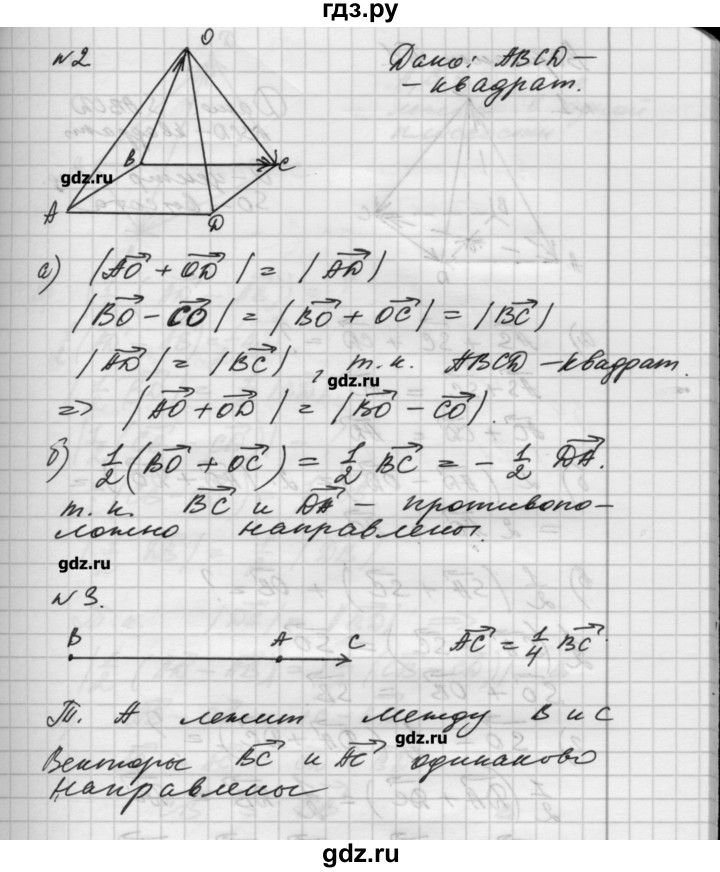 гдз.ру
№2
O
Дано: ABCD –
– квадрат.
B
C
gdz.ru
A
D
а) |AO + OD| = |AD|
|BO – CO| = |BO + OC| = |BC|
|AD| = |BC|, т.к. ABCD – квадрат.
gdz.ru
=> |AO + OD| = |BO – CO|.
б) 1/2 (BO + OC) = 1/2 BC = – 1/2 DA.
т.к. BC и DA – противопо–
ложно направлены.
gdz.ru
№3.
B A C AC = 1/4 BC.
Т. A лежит между B и C
gdz.ru
Векторы BC и AC одинаково
направлены
gdz.ru